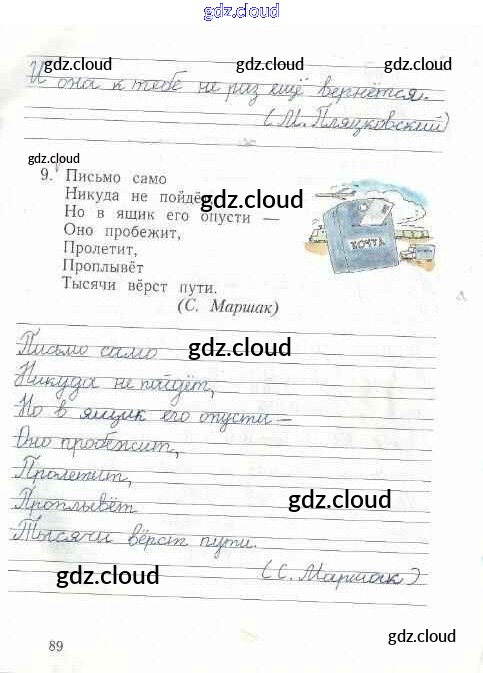 gdz.cloud
gdz.cloud gdz.cloud
И она к тебе не раз ещё вернётся.
(М. Пляцковский)
gdz.cloud
9. Письмо само
Никуда не пойдё gdz.cloud
Но в ящик его опусти —
Оно пробежит,
Пролетит,
Проплывёт
Тысячи вёрст пути.
(С. Маршак)
ПОЧТА
gdz.cloud
Письмо само
gdz.cloud
Никуда не пойдёт,
Но в ящик его опусти —
Оно пробежит,
Пролетит,
Проплывёт
gdz.cloud
Тысячи вёрст пути.
(С. Маршак)
gdz.cloud
gdz.cloud
89